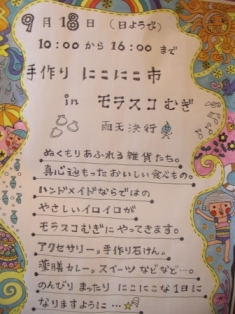 9月18日（日ようび）
10:00から16:00まで
手作り にこにこ市
in モラスコむぎ
雨天決行
ぬくもりあふれる雑貨たち。
真心込もったおいしい食べもの。
ハンドメイドならではの
やさしいイロイロが
モラスコむぎにやってきます。
アクセサリー。手作り石けん。
薬膳カレー。スイーツなどなど…。
のんびりまったりにこにこな1日に
なりますように…☆